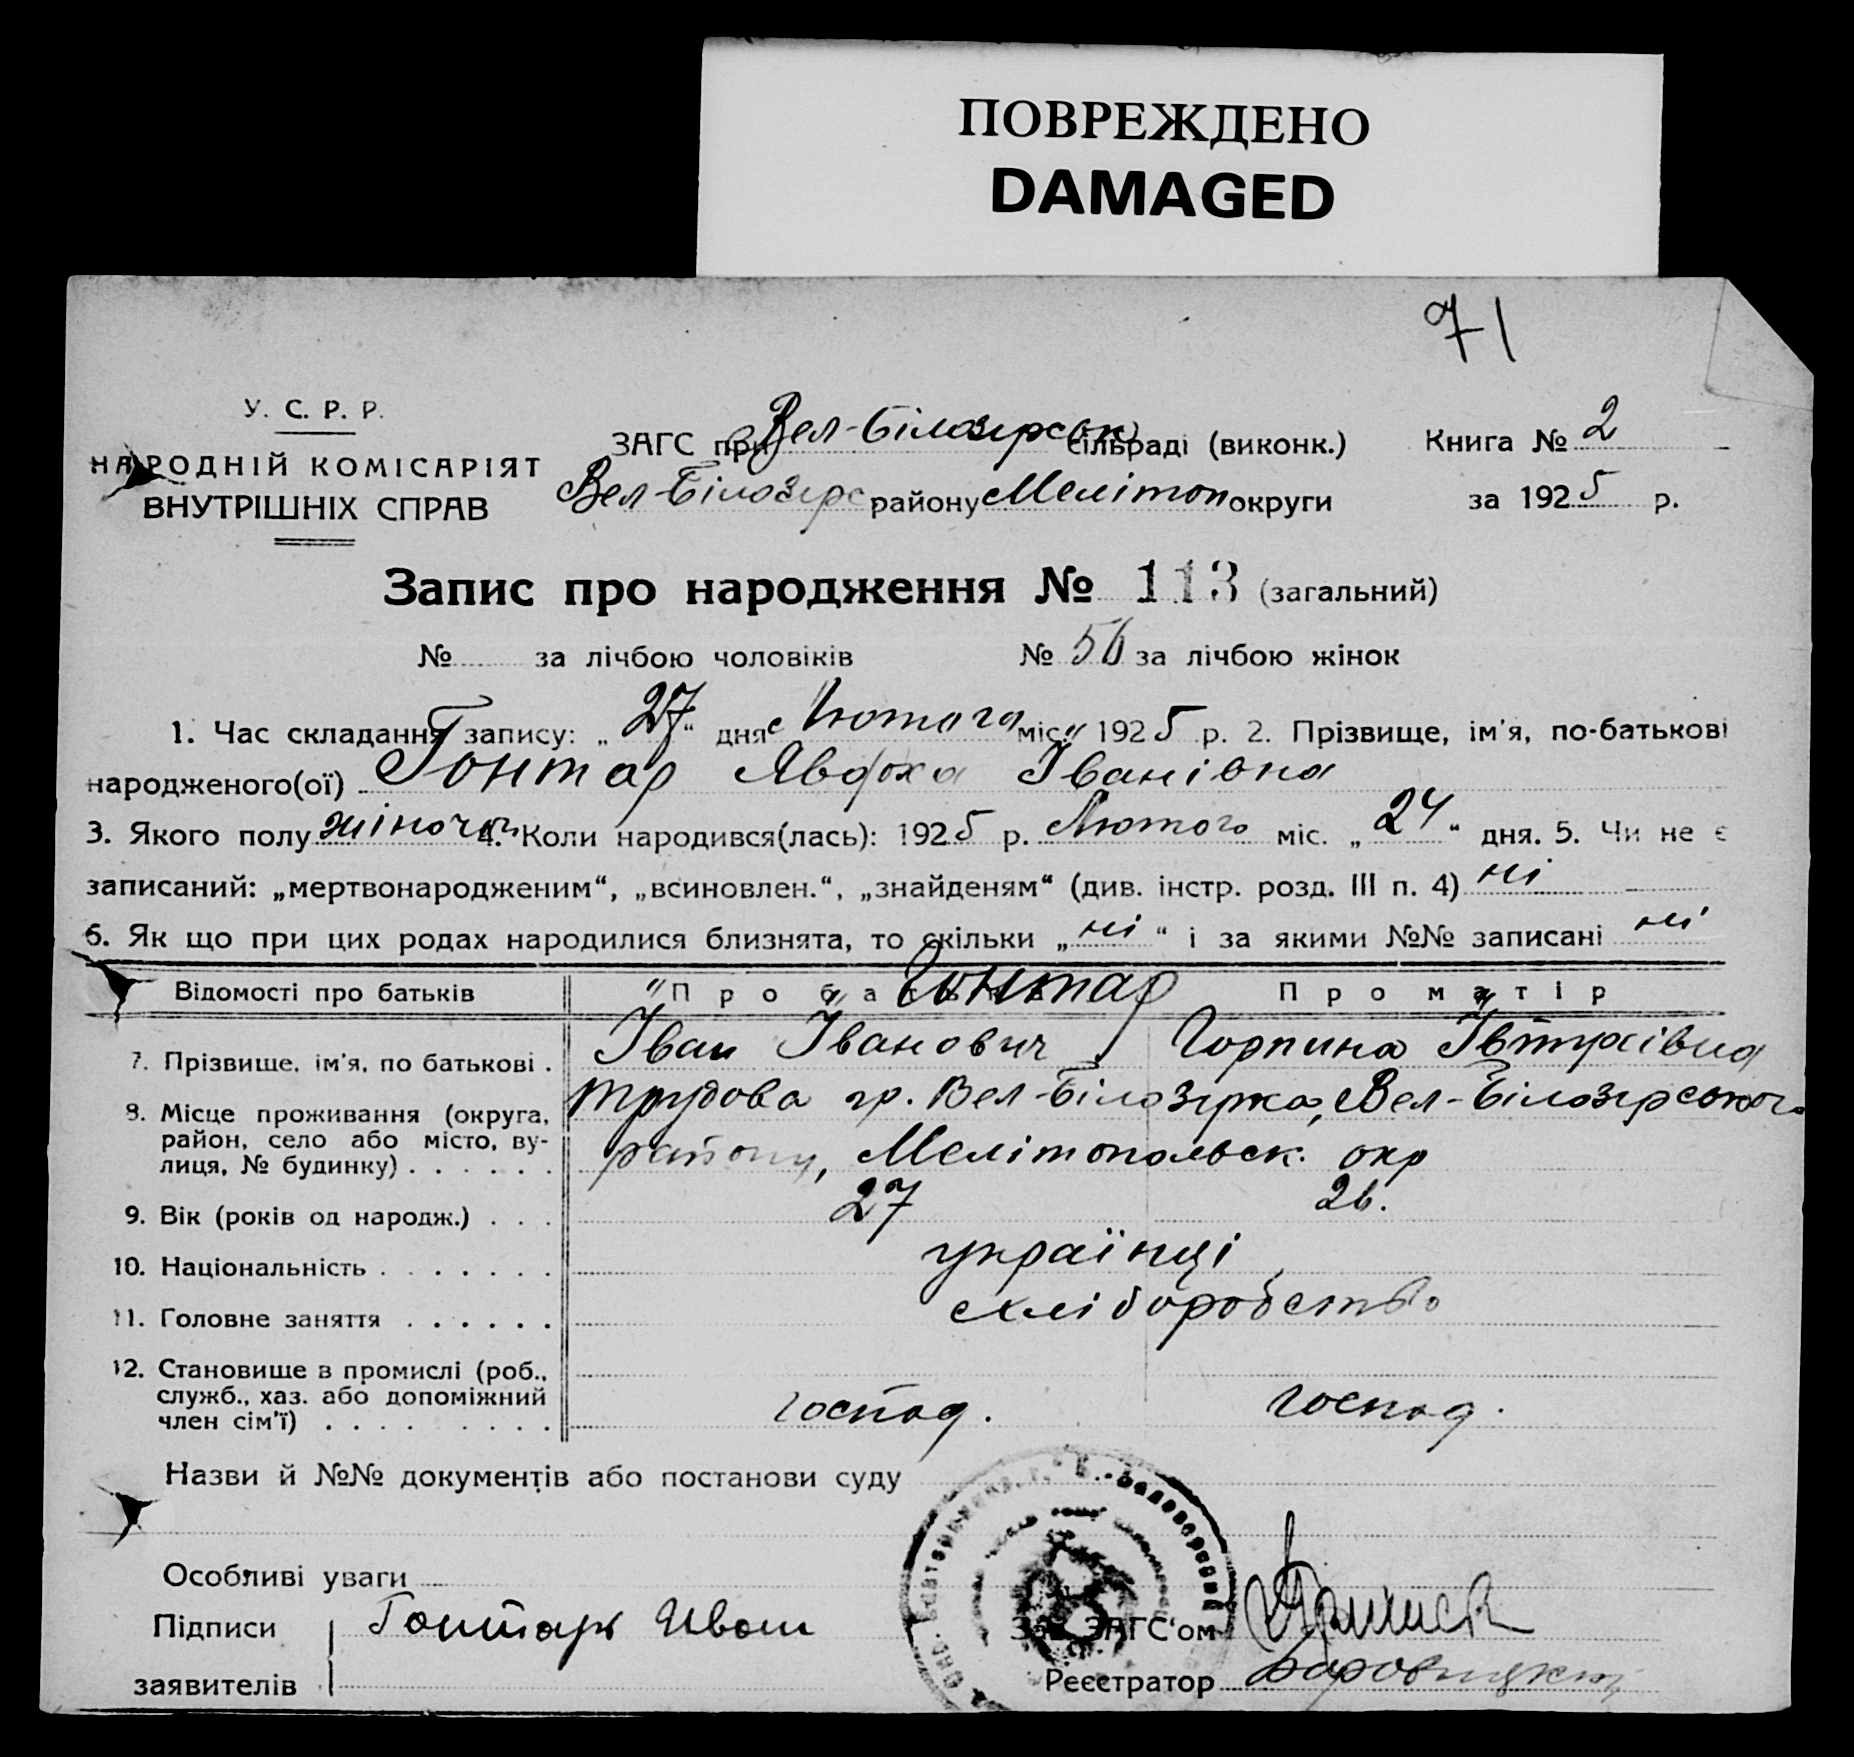 ПОВРЕЖДЕНО
DAMAGED
71
У. С. Р. Р.
НАРОДНІЙ КОМІСАРІЯТ
ВНУТРІШНІХ СПРАВ
ЗАГС при Вел-Білозирськ сільраді (виконк.) Книга № 2
Вел-Білозирс району Мелітоп округи за 1925 р.
Запис про народження № 113 (загальний)
№ за лічбою чоловіків № 56 за лічбою жінок
1. Час складання запису: „27“ дня Лютого міс. 1925 р. 2. Прізвище, ім'я, по-батькові
народженого(ої) Гонтар Явдоха Іванівна
3. Якого полу жіночоі 4. Коли народився(лась): 1925 р. Лютого міс. „24“ дня. 5. Чи не є
записаний: „мертвонародженим“, „всиновлен.“, „знайденям“ (див. інстр. розд. III п. 4) ні
6. Як що при цих родах народилися близнята, то скільки „ні“ і за якими №№ записані ні
Відомості про батьків Про батька Про матір
Гонтар
7. Прізвище, ім'я, по батькові . Іван Іванович Горпина
8. Місце проживання (округа, район, село або місто, вулиця, № будинку) . . . . . . Трудова гр. Вел-Білозирка, Вел-Білозирського
району, Мелітопольск. окр
9. Вік (років од народж.) . . . 27 26.
10. Національність . . . . . . . українці
11. Головне заняття . . . . . . схліборобство
12. Становище в промислі (роб., служб., хаз. або допоміжний член сім'ї) . . . . . . . . господ. господ.
Назви й №№ документів або постанови суду
Особливі уваги
Підписи
заявителів
Гонтарь Иван
Зав. ЗАГС'ом
Реєстратор